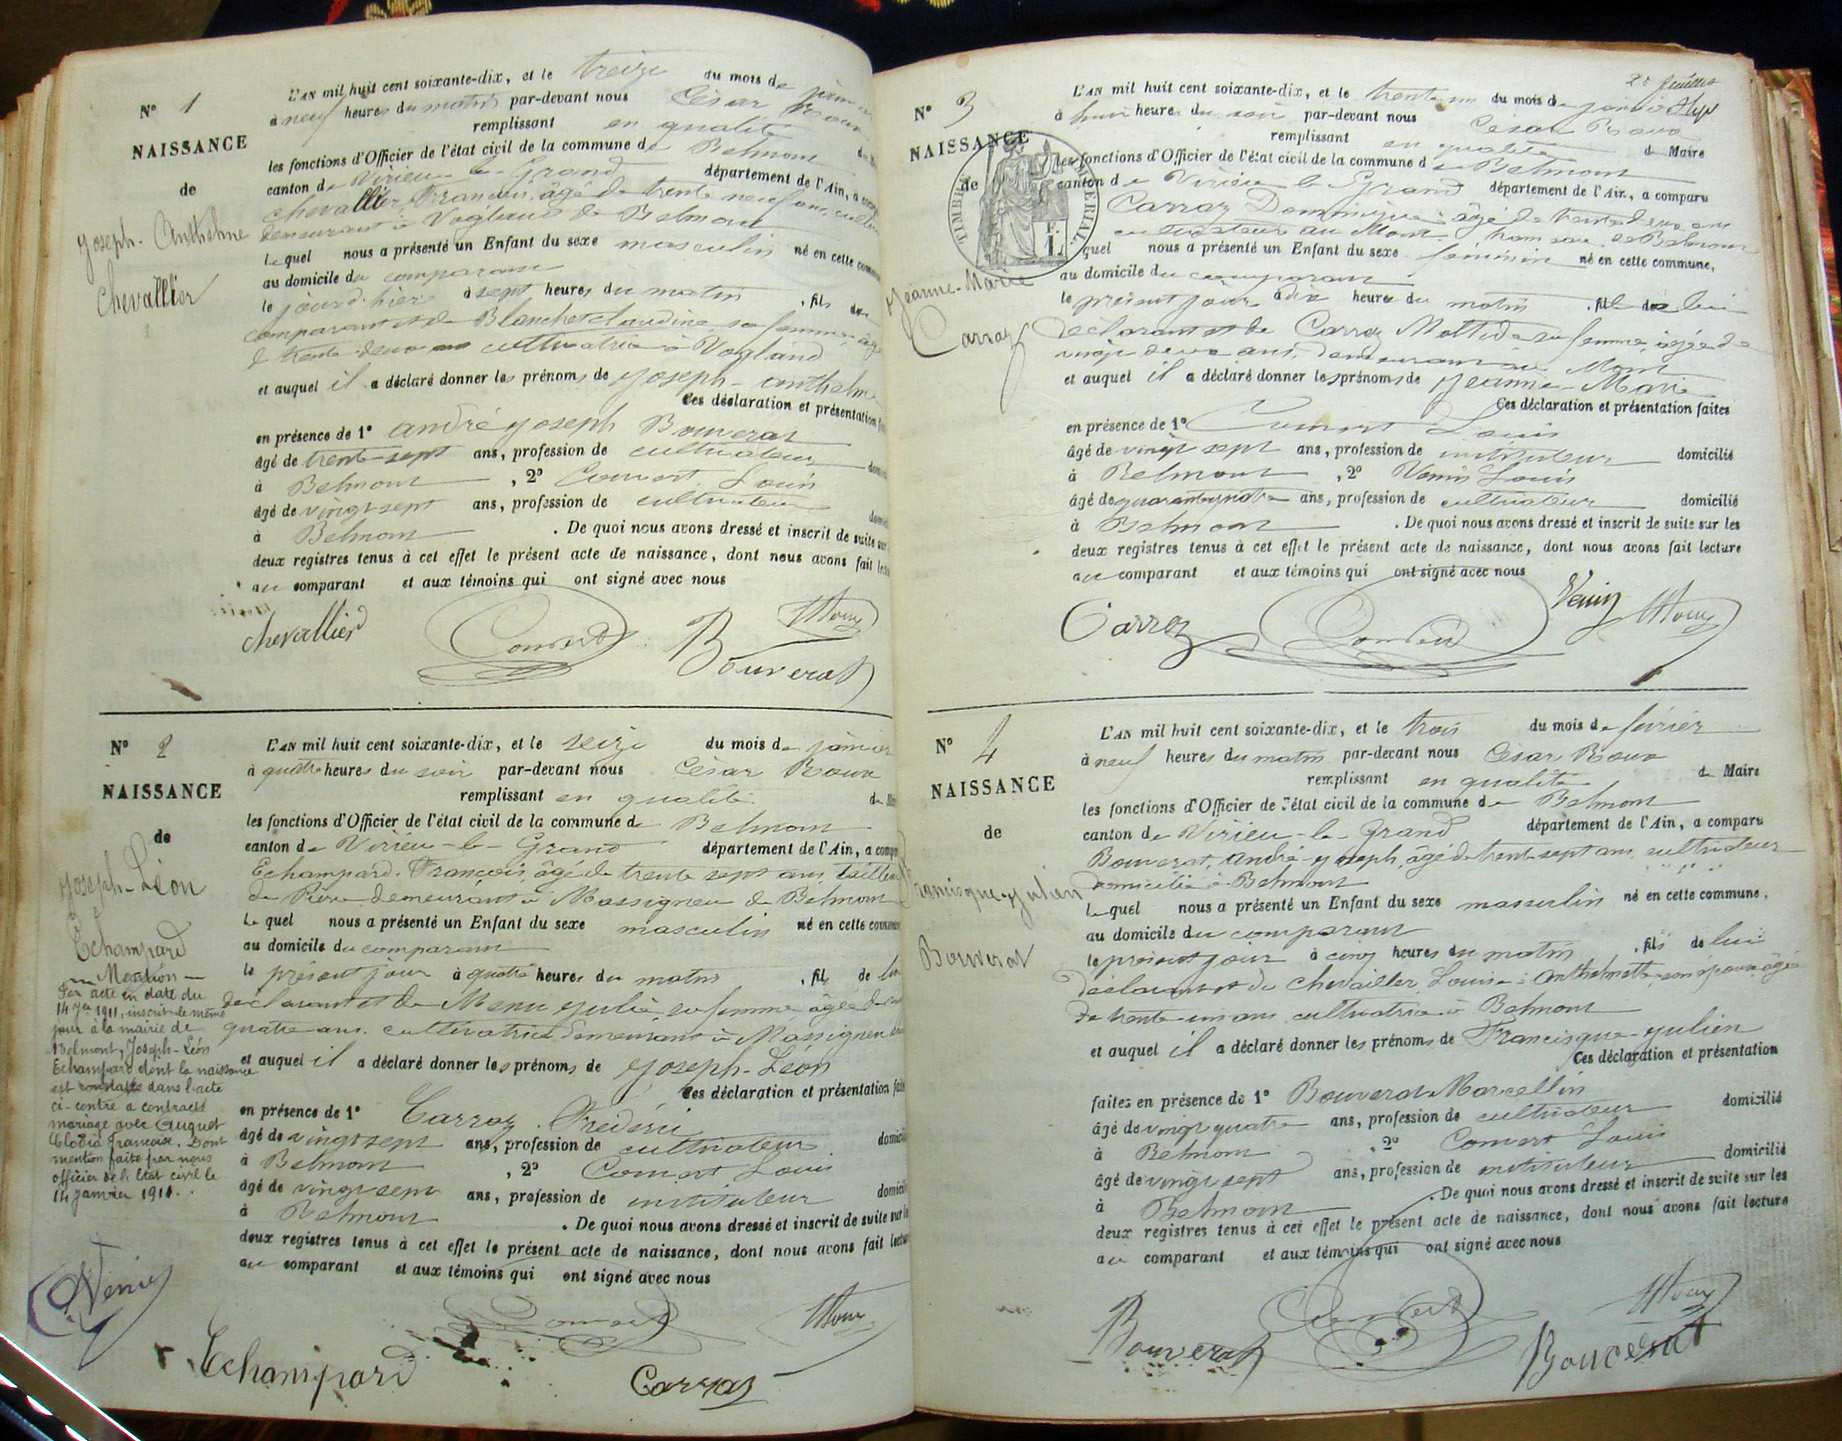 N° 1
NAISSANCE
de
Joseph-Anthelme
Chevallier
L'AN mil huit cent soixante-dix, et le treize du mois de janvier
à neuf heures du matin par-devant nous César Roux
remplissant en qualité
les fonctions d'Officier de l'état civil de la commune de Belmont
canton de Virieu-le-Grand département de l'Ain, a
Chevallier François, âgé de trente neuf ans,
demeurant à Vogland de Belmont
Lequel nous a présenté un Enfant du sexe masculin né en cette
au domicile du comparant
le jour d'hier à sept heures du matin, fils
comparant et de Blanchet Claudine sa femme âgée
de trente-deux ans cultivatrice à Vogland
et auquel il a déclaré donner les prénoms de Joseph-Anthelme
Ces déclaration et présentation
en présence de 1° André Joseph Bouverat
âgé de trente-sept ans, profession de cultivateur
à Belmont, 2° Comert Louis
âgé de vingt sept ans, profession de cultivateur
à Belmont. De quoi nous avons dressé et inscrit de suite sur
deux registres tenus à cet effet le présent acte de naissance, dont nous avons fait
au comparant et aux témoins qui ont signé avec nous
Chevallier
Bouverat
N° 2
NAISSANCE
de
Joseph-Léon
Echampard
Mention
Par acte en date du
14 1911, inscrit le même
jour à la mairie de
Belmont, Joseph-Léon
Echampard dont la naissance
est constatée dans l'acte
ci-contre a contracté
mariage avec Auguet
Clodia Françoise. Dont
mention faite par nous
officier de l'Etat civil le
14 janvier 1911.
L'AN mil huit cent soixante-dix, et le seize du mois de janvier
à quatre heures du soir par-devant nous César Roux
remplissant en qualité
les fonctions d'Officier de l'état civil de la commune de Belmont
canton de Virieu-le-Grand département de l'Ain, a
Echampard François, âgé de trente sept ans, tailleur
de Pierre demeurant à Massignieu de Belmont
Lequel nous a présenté un Enfant du sexe masculin né en cette
au domicile du comparant
le présent jour à quatre heures du matin, fils de lui
déclarant et de Menu Julie, sa femme âgée de
quatre ans cultivatrice demeurant à Massignieu
et auquel il a déclaré donner les prénoms de Joseph-Léon
Ces déclaration et présentation
en présence de 1° Carraz Frédéric
âgé de vingt sept ans, profession de cultivateur
à Belmont, 2° Comert Louis
âgé de vingt sept ans, profession de instituteur
à Belmont. De quoi nous avons dressé et inscrit de suite sur
deux registres tenus à cet effet le présent acte de naissance, dont nous avons fait
au comparant et aux témoins qui ont signé avec nous
Echampard
Carraz
2e feuillet
N° 3
NAISSANCE
de
Jeanne-Marie
Carraz
TIMBRE IMPÉRIAL
L'AN mil huit cent soixante-dix, et le trente un du mois de janvier
à huit heures du soir par-devant nous César Roux
remplissant en qualité de Maire
les fonctions d'Officier de l'état civil de la commune de Belmont
canton de Virieu le Grand département de l'Ain, a comparu
Carraz Dominique âgé de trente deux ans
cultivateur au Mont hameau de Belmont
Lequel nous a présenté un Enfant du sexe féminin né en cette commune,
au domicile du comparant
le présent jour à dix heures du matin, fille de lui
déclarant et de Carraz Mathilde sa femme, âgée de
vingt deux ans, demeurant au Mont
et auquel il a déclaré donner les prénoms de Jeanne-Marie
Ces déclaration et présentation faites
en présence de 1° Comert Louis
âgé de vingt sept ans, profession de instituteur domicilié
à Belmont, 2° Venin Louis
âgé de quarante quatre ans, profession de cultivateur domicilié
à Belmont. De quoi nous avons dressé et inscrit de suite sur les
deux registres tenus à cet effet le présent acte de naissance, dont nous avons fait lecture
au comparant et aux témoins qui ont signé avec nous
Carraz
Venin
N° 4
NAISSANCE
de
Francisque-Julien
Bouverat
L'AN mil huit cent soixante-dix, et le trois du mois de février
à neuf heures du matin par-devant nous César Roux
remplissant en qualité de Maire
les fonctions d'Officier de l'état civil de la commune de Belmont
canton de Virieu-le-Grand département de l'Ain, a comparu
Bouverat, André-Joseph, âgé de trente-sept ans, cultivateur
domicilié à Belmont
Lequel nous a présenté un Enfant du sexe masculin né en cette commune,
au domicile du comparant
le présent jour à cinq heures du matin, fils de lui
déclarant et de Chevallier Louise-Anthelmette son épouse âgée
de trente-un ans cultivatrice à Belmont
et auquel il a déclaré donner les prénoms de Francisque-Julien
Ces déclaration et présentation
faites en présence de 1° Bouverat Marcellin
âgé de vingt quatre ans, profession de cultivateur domicilié
à Belmont, 2° Comert Louis
âgé de vingt sept ans, profession de instituteur domicilié
à Belmont. De quoi nous avons dressé et inscrit de suite sur les
deux registres tenus à cet effet le présent acte de naissance, dont nous avons fait lecture
au comparant et aux témoins qui ont signé avec nous
Bouverat
Bouverat